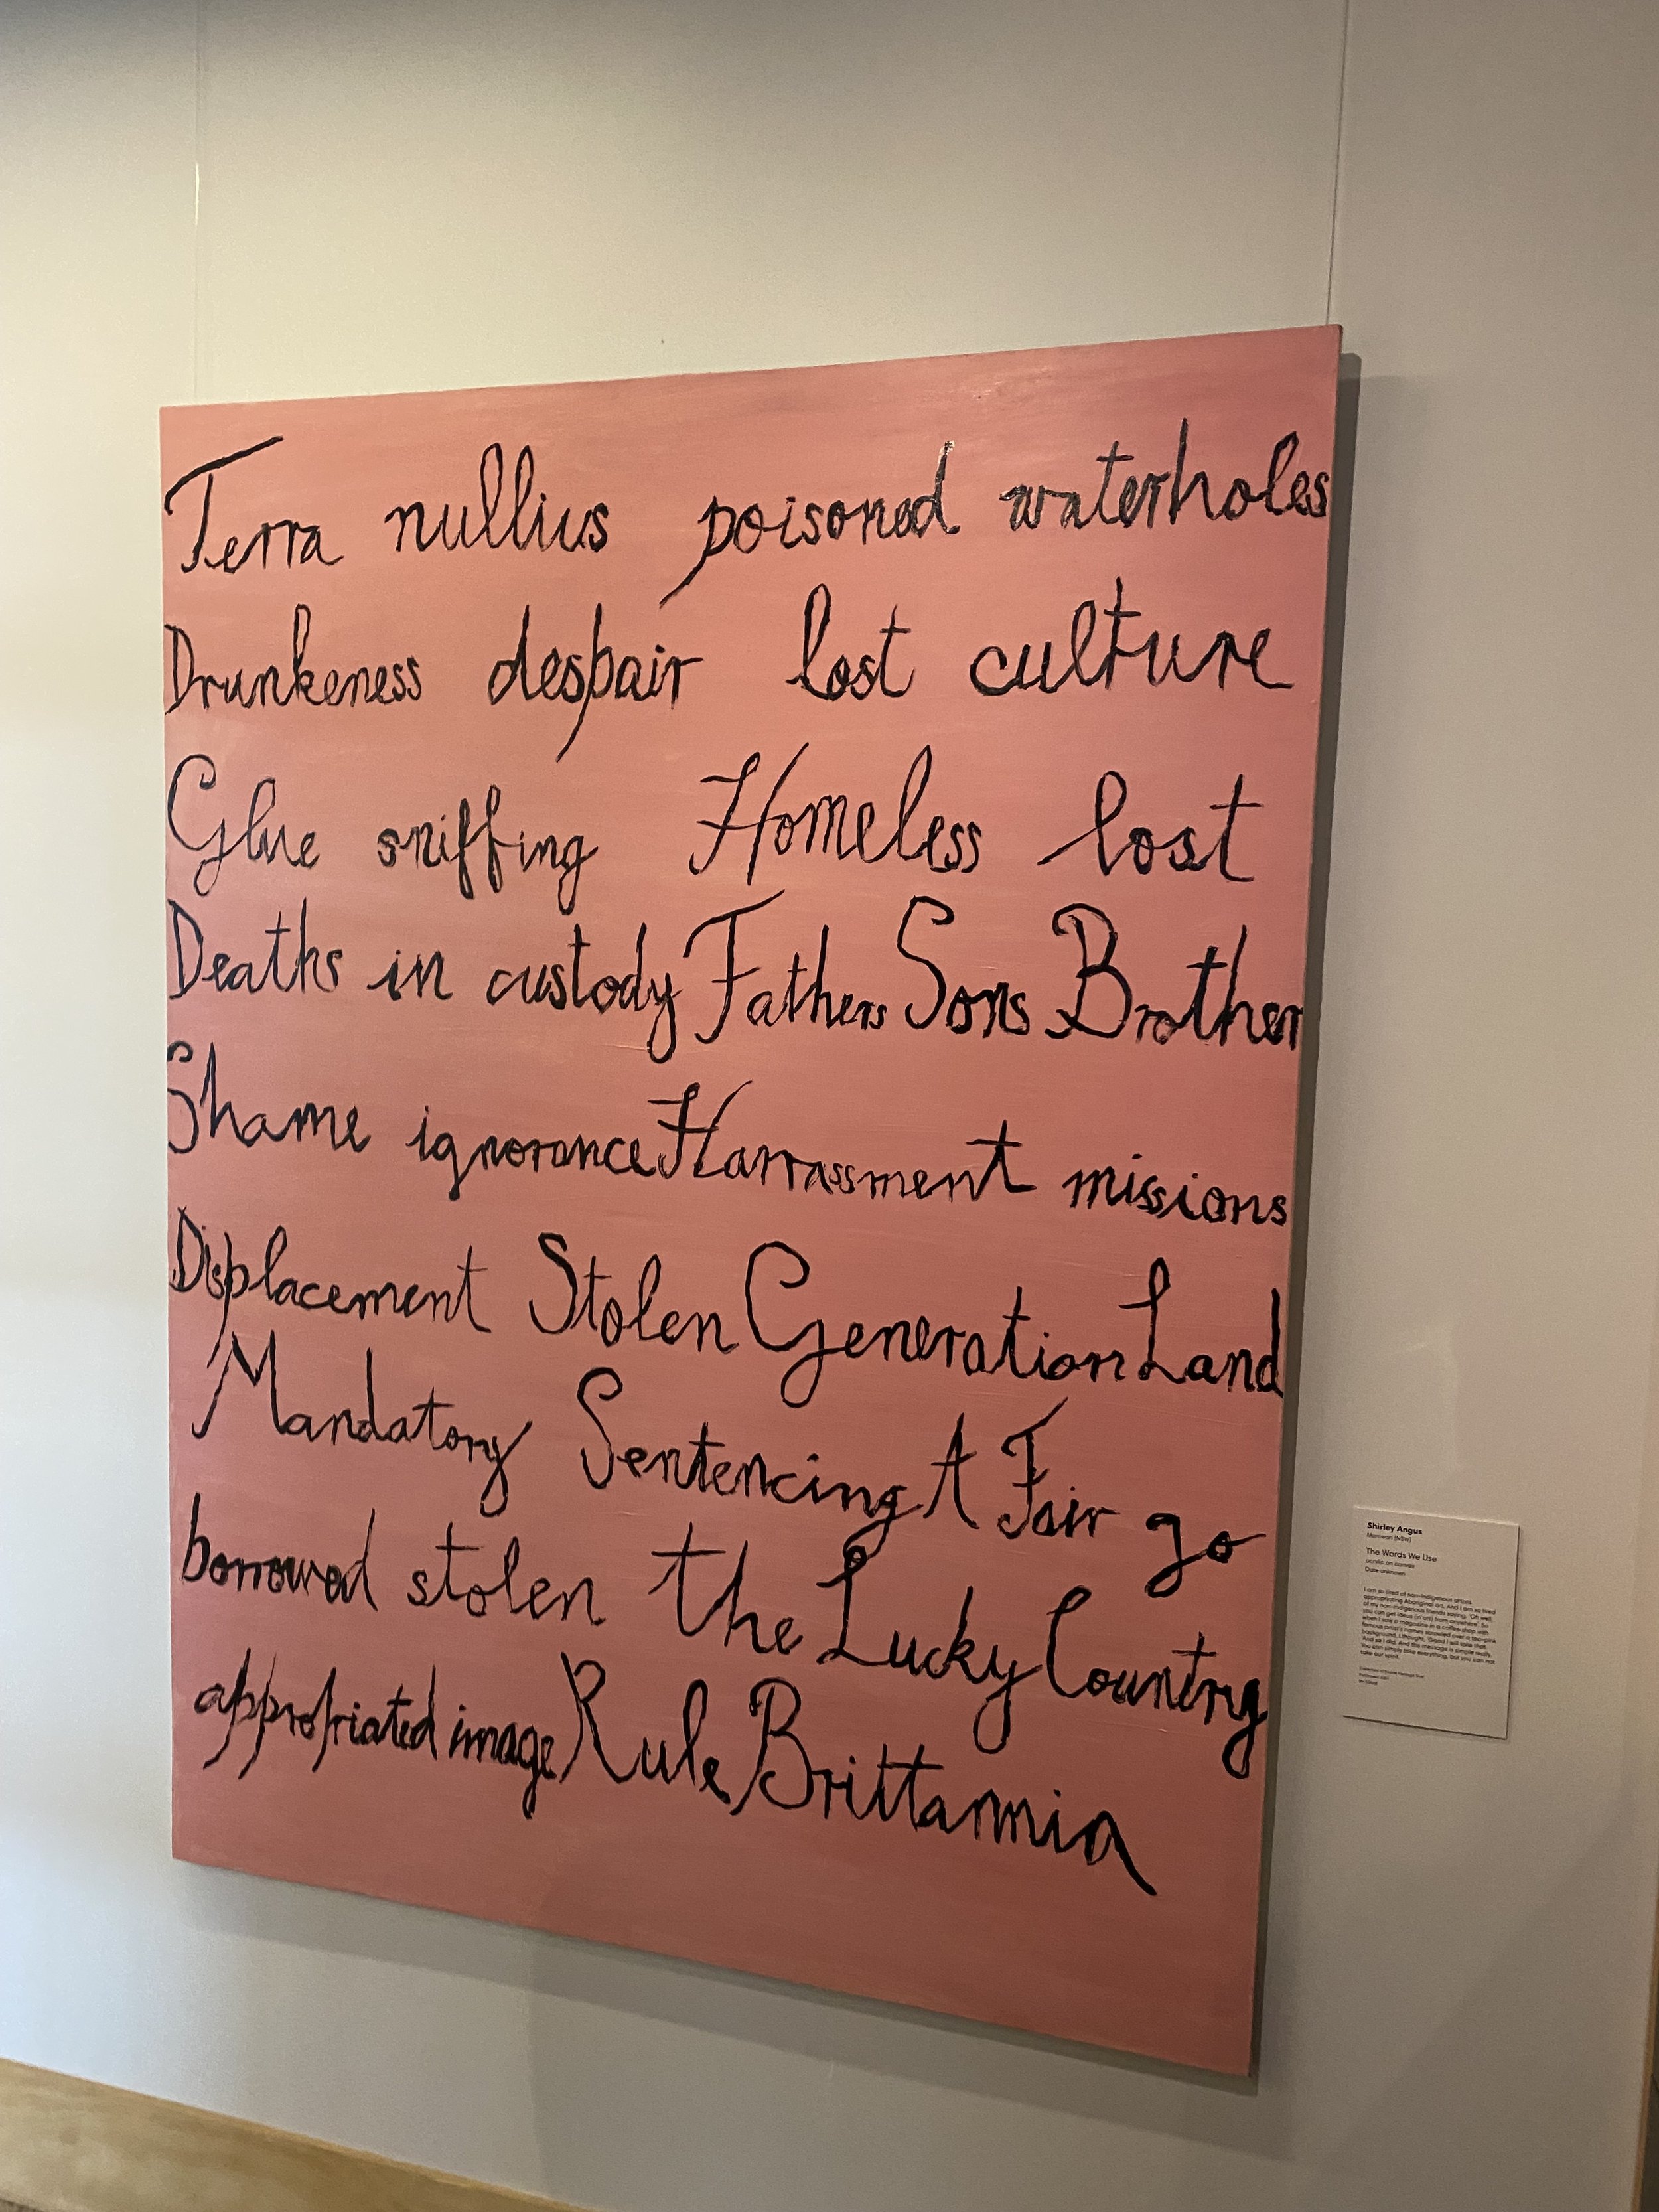 Terra nullius poisoned waterholes
Drunkeness despair lost culture
Glue sniffing Homeless lost
Deaths in custody Fathers Sons Brother
Shame ignorance Harrassment missions
Displacement Stolen Generation Land
Mandatory Sentencing A Fair go
borrowed stolen the Lucky Country
appropriated image Rule Brittannia
Shirley Angus
The Words We Use
acrylic on canvas
Date unknown
I am so tired of non-Indigenous artists
appropriating Aboriginal art. And I am so tired
of my non-Indigenous friends saying, 'Oh well,
you can get ideas (in art) from anywhere'. So
when I saw a magazine in a coffee shop with
famous artist's names scrawled over a background, I thought, 'Good I will take that.
And so I did. And the message is simple really.
You can simply take everything, but you can not
take our spirit.